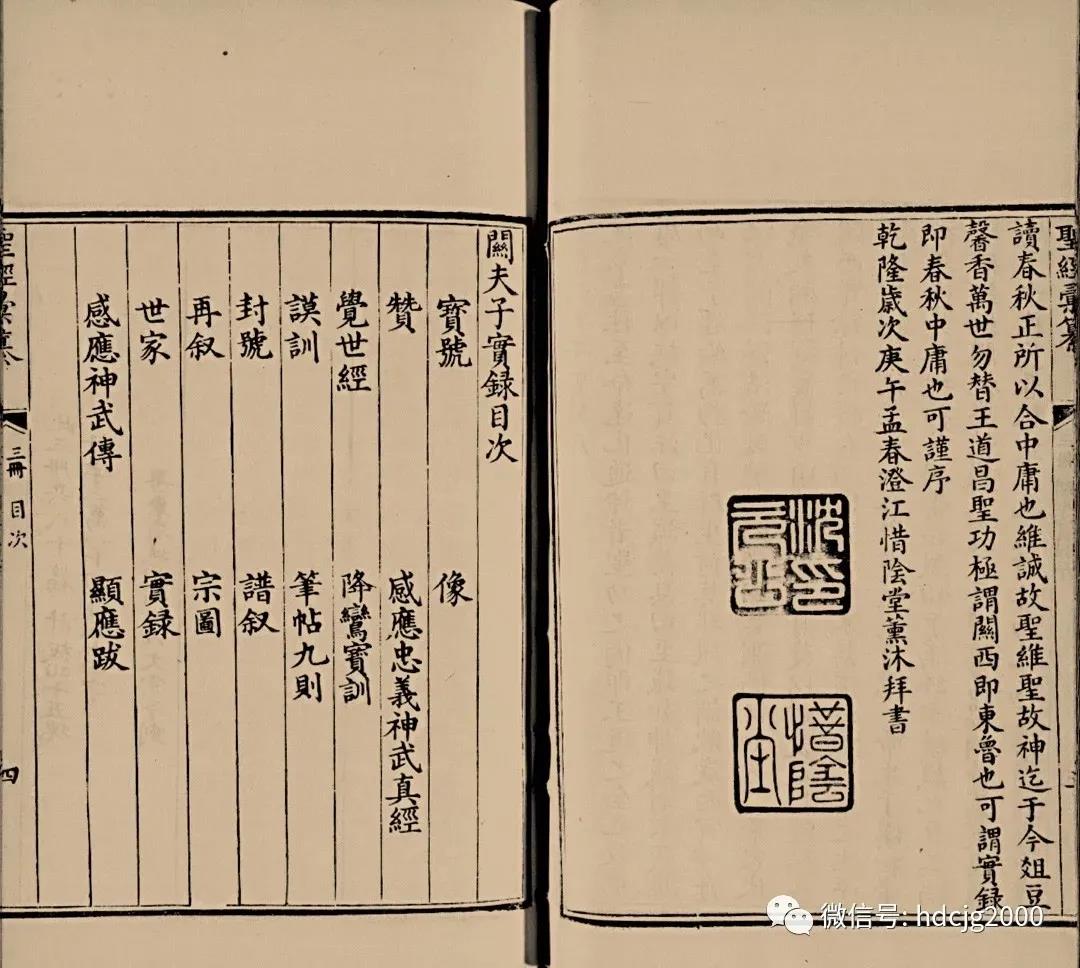 聖經彙纂
讀春秋正所以合中庸也維誠故聖維聖故神迄于今俎豆
馨香萬世勿替王道昌聖功極謂關西即東魯也可謂實録
即春秋中庸也可謹序
乾隆歲次庚午孟春澄江惜陰堂薰沐拜書
惜陰堂
關夫子實録目次
寶號 像
贊 感應忠義神武真經
覺世經 降鸞寳訓
謨訓 筆帖九則
封號 譜叙
再叙 宗圖
世家 實録
感應神武傳 顯應跋
聖經彙纂 三冊 目次 四
微信号: hdcjg2000